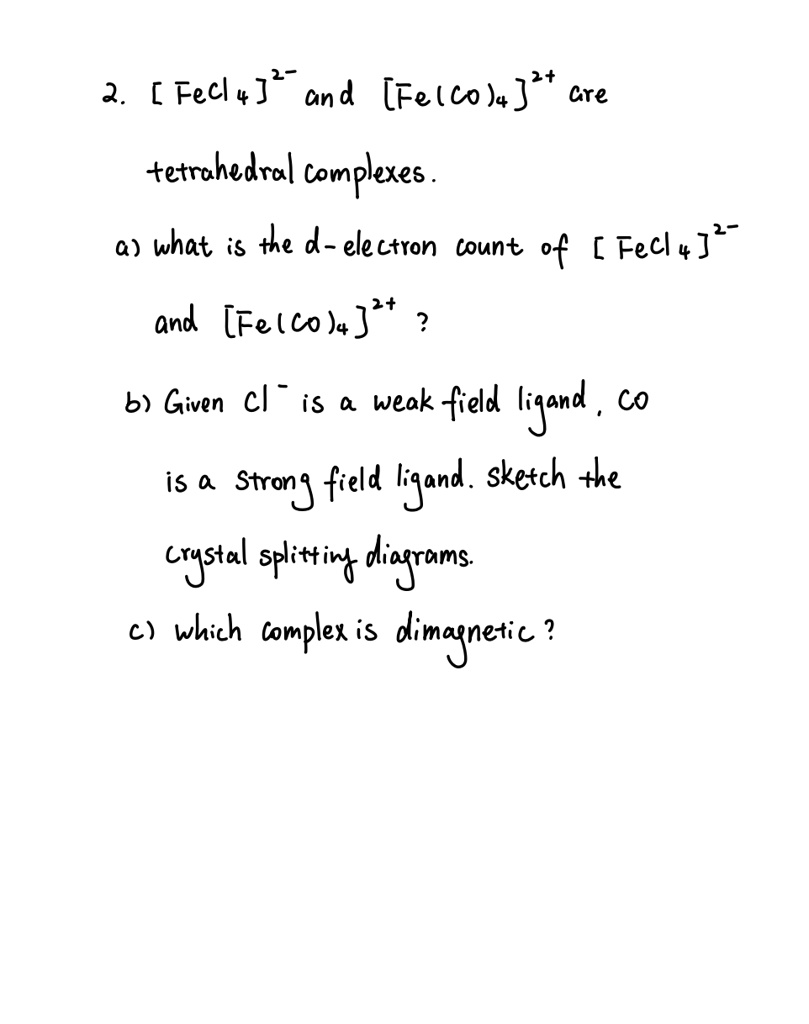 2. [FeCl4]²⁻ and [Fe(CO)4]²⁺ are
tetrahedral complexes.
a) what is the d-electron count of [FeCl4]²⁻
and [Fe(CO)4]²⁺ ?
b) Given Cl⁻ is a weak field ligand, CO
is a strong field ligand. Sketch the
crystal splitting diagrams.
c) which complex is dimagnetic?